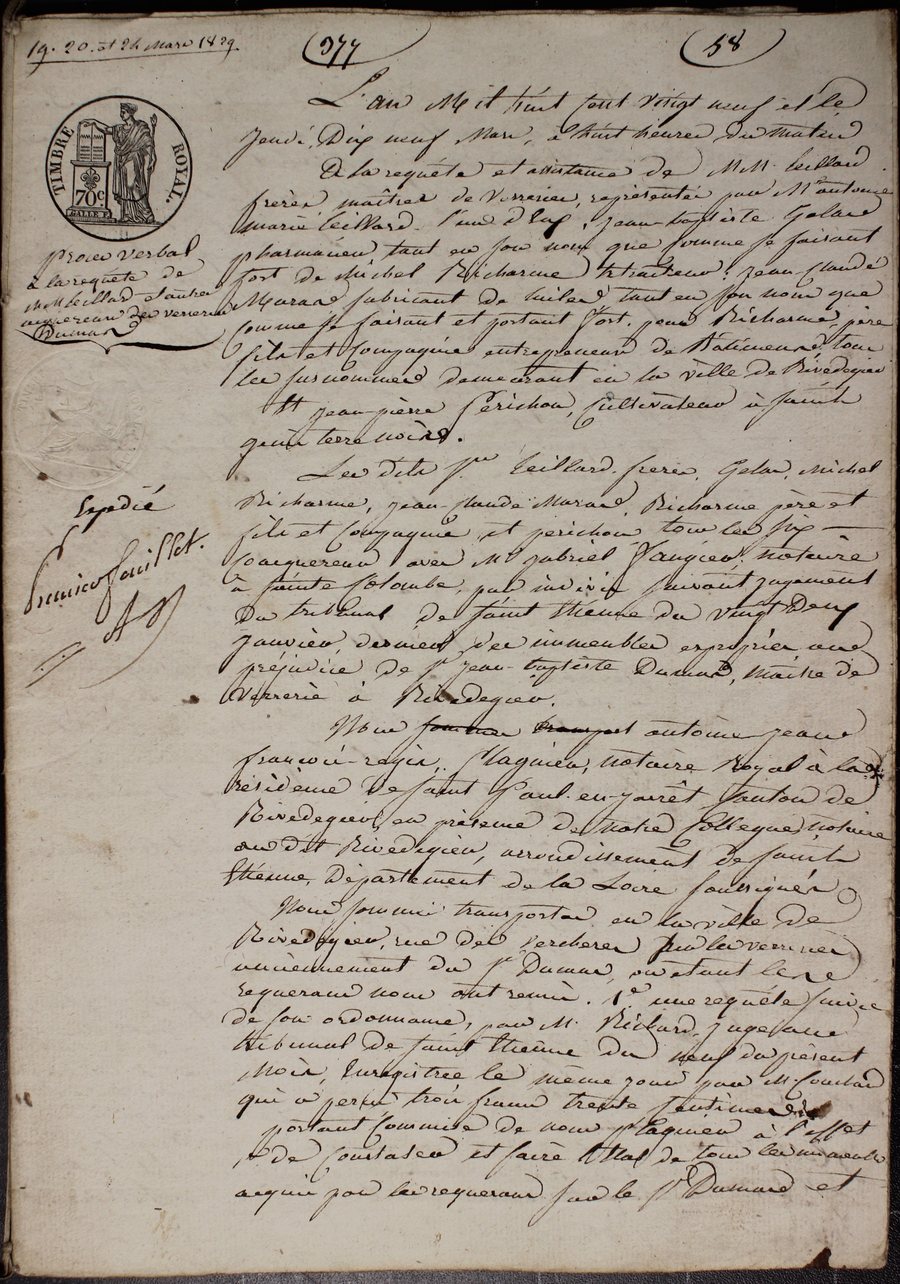 19. 20. et 24 Mars 1829.
377
58
TIMBRE ROYAL.
70c
Procès verbal
à la requete de
MM teillard et autres
acquereurs des verreries
Dumas
Expedié
L'an Mil huit cent vingt neuf et le
Jeudi, Dix neuf Mars, à huit heures du matin
A la requête et assistance de M.M. teillard
frères maîtres de verreries, représentés par Mr antoine
marie teillard l'un d'eux, jean-baptiste Gelas
pharmacien tant en son nom que comme se faisant
fort de Michel Richarme traiteur, jean claude
Maras fabricant de tuiles, tant en son nom que
comme se faisant et portant fort pour Richarme père
fils et Compagnie entrepreneurs de Batimens, tous
les surnommés demeurant en la ville de Rivedegier
Et jean-pierre Perichon, Cultivateur à saint
genis terre noire.
Les dits srs teillard frères, Gelas, Michel
Richarme, jean-claude Maras, Richarme père et
fils et Compagnie, et perichon tous les six
coacquereurs avec Mr gabriel notaire
à sainte Colombe, par indivis suivant jugement
Du tribunal de saint Etienne du vingt Deux
janvier dernier, des immeubles expropriés au
préjudice de sr jean-baptiste Dumas, maître de
verrerie à Rivedegier.
Nous sommes transport antoine jean
françois-regis notaire Royal à la
résidence de saint Paul-en-jarrêt canton de
Rivedegier, en présence de notre Collegue, notaire
au dit Rivedegier, arrondissement de saint
Etienne, Département de la Loire soussignés
Nous sommes transportés en la ville de
Rivedegier, rue des verchères sur les verreries
anciennement du sr Dumas, où étant les
requerans nous ont remis. 1° une requête suivie
de son ordonnance, par M. Richard, juge au
tribunal de saint Etienne du neuf du présent
Mois, Enregistrée le même jour par M.
qui a perçu trois francs trente centimes
portant Commise de nous à l'effet
de Constater et faire Etat de tous les immeubles
acquis par les requerans sur le sr Dumas et